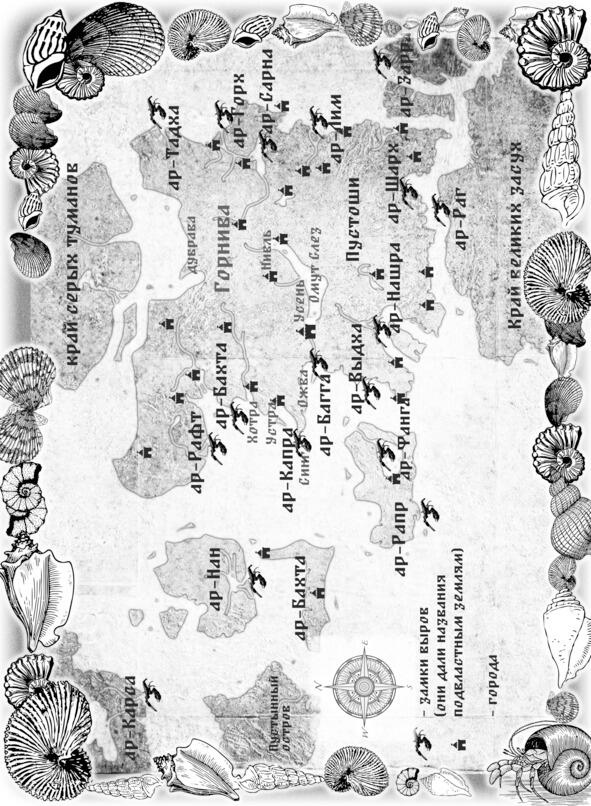 Край серых туманов
ар-Карад
ар-Тадха
Дубрава
ар-Рафт
ар-Нан
ар-Бахта
Горнива
ар-Горх
Хотра
ар-Сарна
Устра
Нивль
Пустынный
остров
ар-Капра
ар-Бахта
Усень
Ожва
Омут Слез
ар-Багта
ар-Лим
Пустоши
ар-Выдха
ар-Шарх
ар-Нашра
ар-Рапр
ар-Фанга
ар-Раг
Край великих засух
N
W
E
S
- замки выров
(они дали названия
подвластным землям)
- города